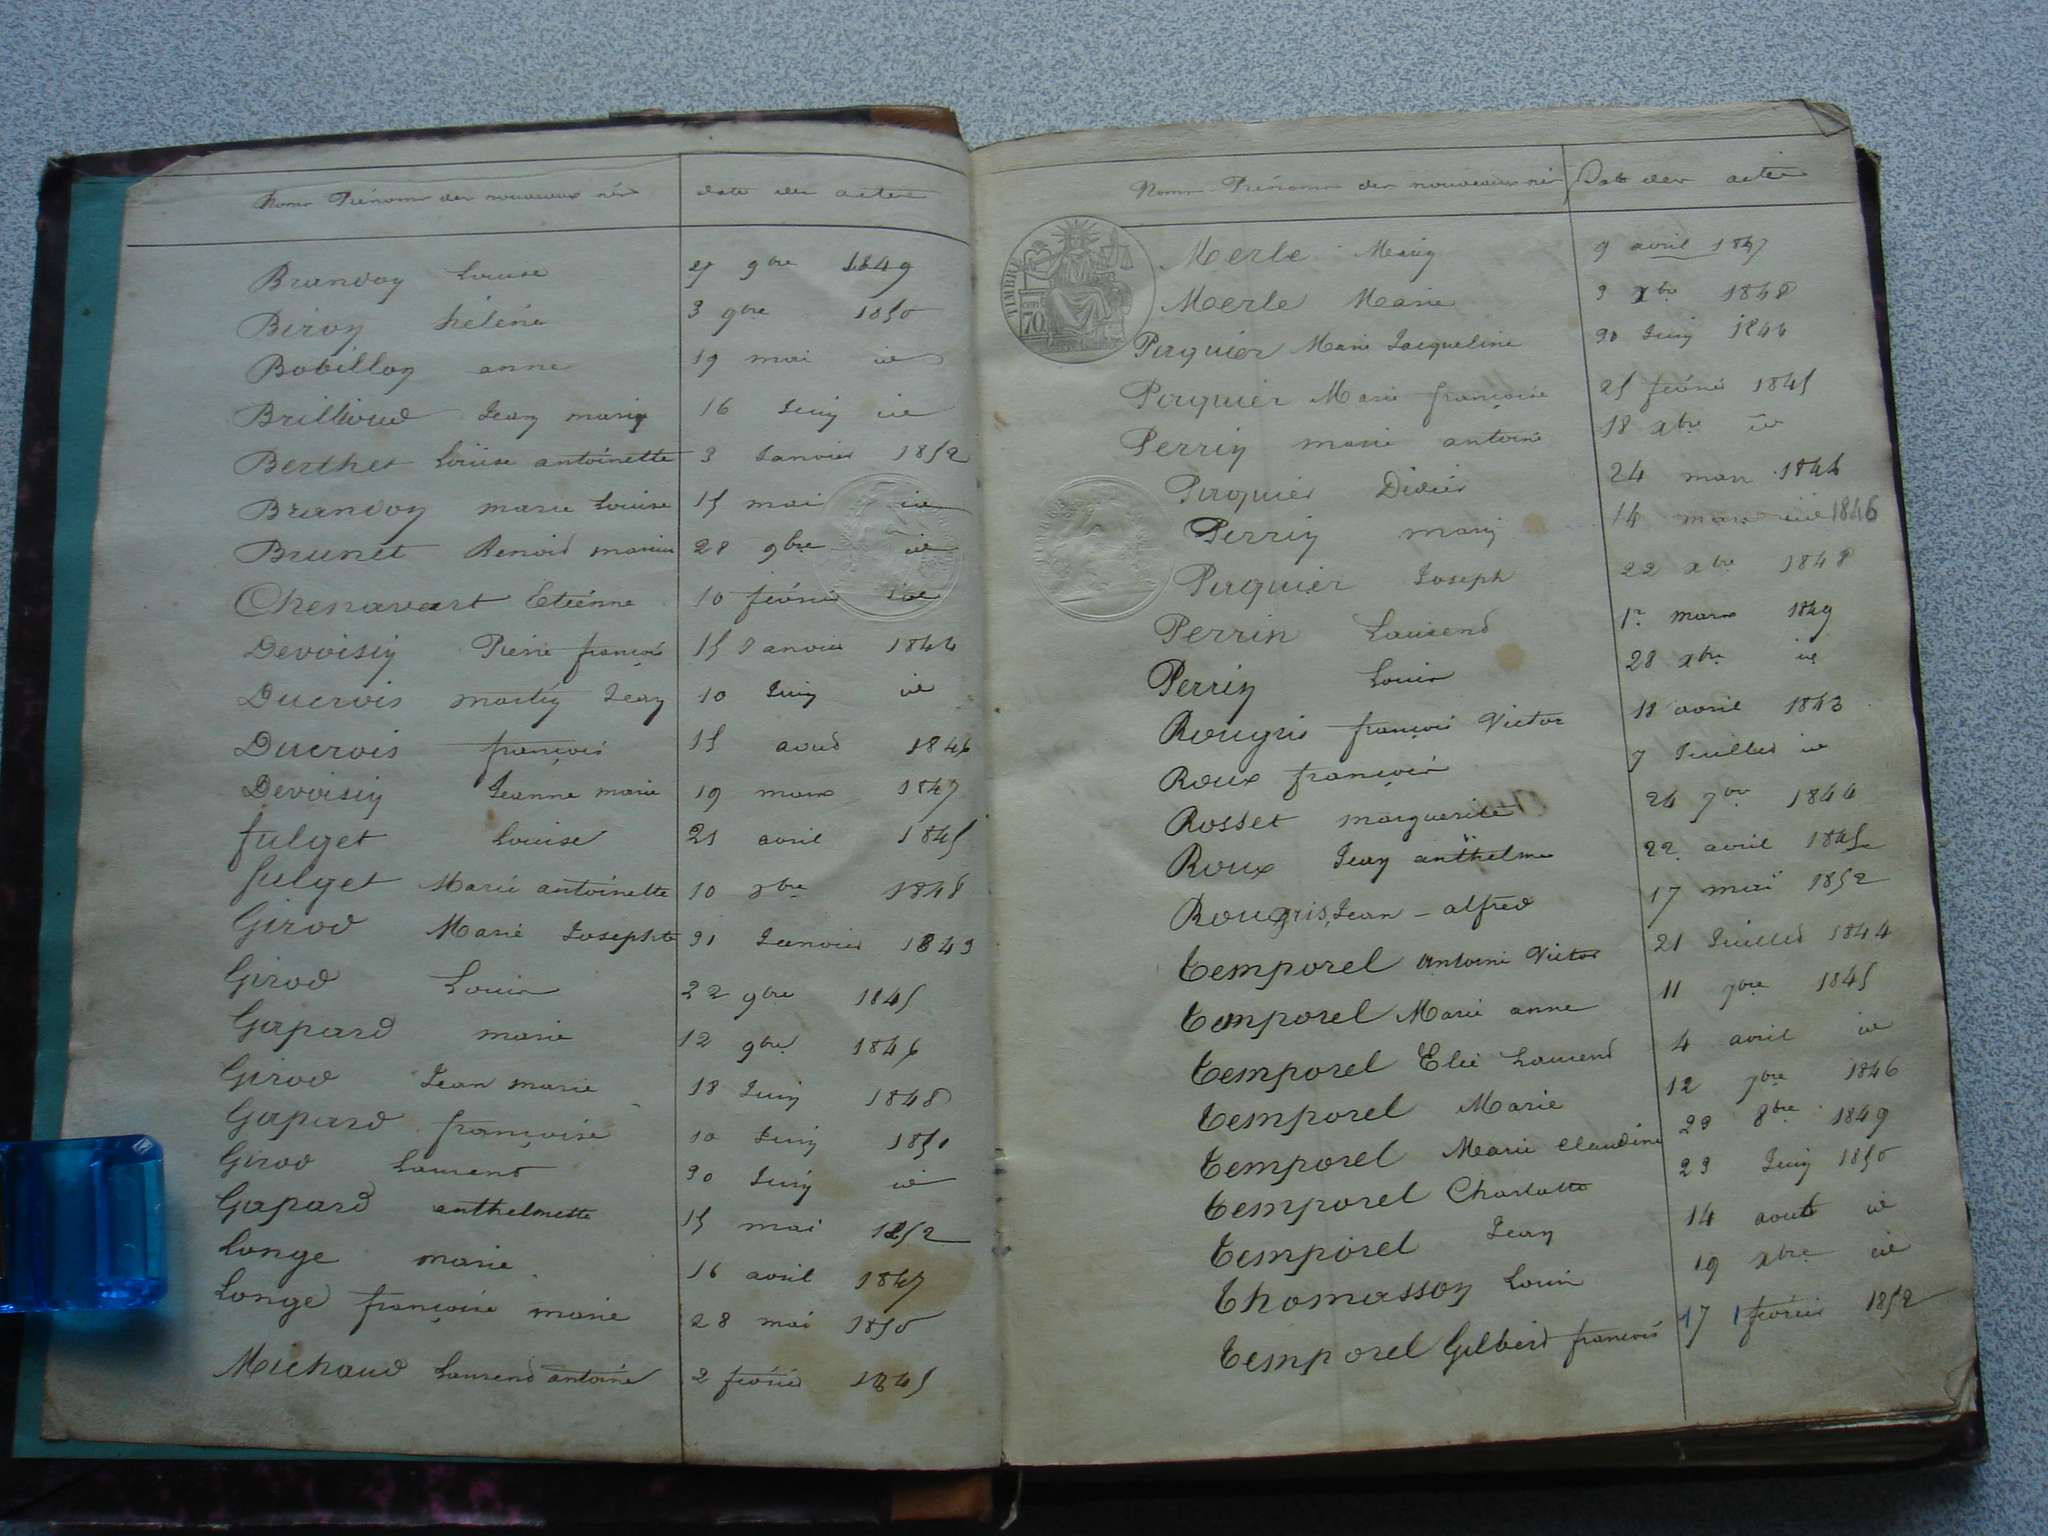 Noms Prénoms des nouveaux nés date des actes
Brandoy Louise 9bre 1849
Biroy héléne 3 9bre 1850
Bobilloy anne 19 mai id
Brilloud Jeay mariy 16 Juiy id
Berthet Louise antoinette 3 Janvier 1852
Brandoy marie Louise 15 mai id
Brunet Benoid marius 28 9bre id
Chenavart Etiénne 10 février id
Devoisiy Piérre françois 15 Janvier 1844
Ducrois martiy Jeay 10 Juiy id
Ducrois françois 15 aoud 1846
Devoisiy Jeanne marie 19 mars 1847
fulget Louise 21 avril 1845
fulget Marie antoinette 10 xbre 1848
Girod Marie Josephte 31 Janvier 1843
Girod Louis 22 9bre 1845
Gapard marie 12 9bre 1846
Girod Jean marie 18 Juiy 1848
Gapard françoise 10 Juiy 1850
Girod Laurent 30 Juiy id
Gapard anthelmette 15 mai 1852
Longe marie 16 avril 1847
Longe françoise marie 28 mai 1850
Michaud Laurend antoine 2 février 1845
Noms Prénoms des nouveaux nés Date des actes
TIMBRE
70
Merle Mariy 9 avril 1847
Merle Marie 3 xbre 1848
Paquier Marie Jacqueline 30 Juiy 1844
Paquier Marie françoise 25 février 1845
Perriy marie antoine 18 xbre id
Paquier Didier 24 mars 1846
Perriy mariy 14 mars id 1846
Paquier Joseph 22 xbre 1848
Perrin Laurend 1r mars 1849
Perriy Louis 28 xbre id
Rougris françois Victor 18 avril 1843
Roux françois 7 Juilled id
Rosset marguerite 24 7bre 1844
Roux Jeay anthelme 22 avril 1845
Rougris, Jean - alfred 17 mai 1852
Temporel antoine Victor 21 Juilled 1844
Temporel Marie anne 11 7bre 1845
Temporel Elie Laurend 4 avril id
Temporel Marie 12 7bre 1846
Temporel Marie Claudine 23 8bre 1849
Temporel Charlotte 23 Juiy 1850
Temporel Jeay 14 aout id
Thomassoy Louis 19 xbre id
Temporel Gilberd françois 17 février 1852